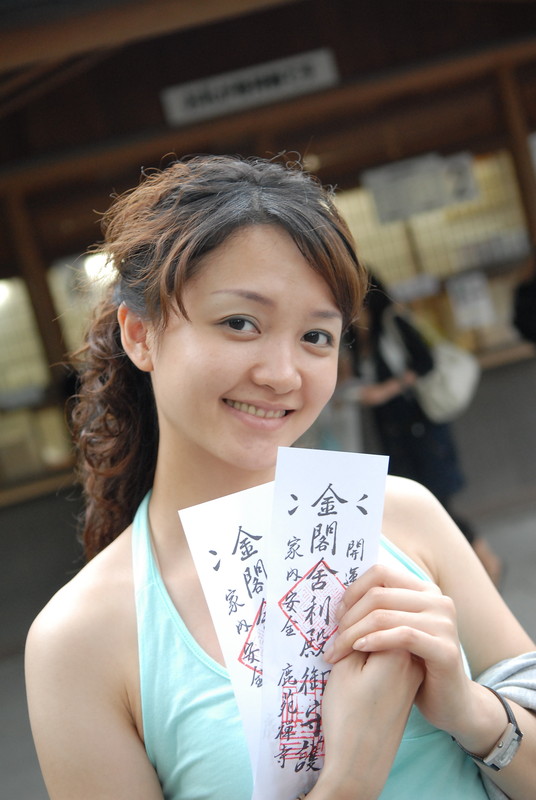 開運
金閣舎利殿御守護
家内安全 鹿苑禅寺
金閣
家内安全